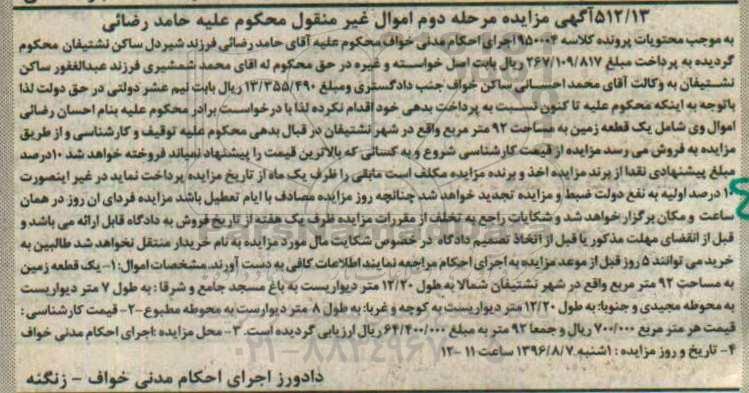 ۵۱۲/۱۳آگهی مزایده مرحله دوم اموال غیر منقول محکوم علیه حامد رضائی
به موجب محتویات پرونده کلاسه ۹۵۰۰۰۴ اجرای احکام مدنی خواف محکوم علیه آقای حامد رضائی فرزند شیردل ساکن نشتیفان محکوم
گردیده به پرداخت مبلغ ۲۶۷/۱۰۹/۸۱۷ ریال بابت اصل خواسته و غیره در حق محکوم له اقای محمد شمشیری فرزند عبدالغفور ساکن
نشتیفان به وکالت آقای محمد احسانی ساکن خواف جنب دادگستری ومبلغ ۱۳/۳۵۵/۴۹۰ ریال بابت نیم عشر دولتی در حق دولت لذا
باتوجه به اینکه محکوم علیه تا کنون نسبت به پرداخت بدهی خود اقدام نکرده لذا با درخواست برادر محکوم علیه بنام احسان رضائی
اموال وی شامل یک قطعه زمین به مساحت ۹۲ متر مربع واقع در شهر نشتیفان در قبال بدهی محکوم علیه توقیف و کارشناسی و از طریق
مزایده به فروش می رسد مزایده از قیمت کارشناسی شروع و به کسانی که بالاترین قیمت را پیشنهاد نمایند فروخته خواهد شد ۱۰درصد
مبلغ پیشنهادی نقدا از برنده مزایده اخذ و برنده مزایده مکلف است مابقی را ظرف یک ماه از تاریخ مزایده پرداخت نماید در غیر اینصورت
۱۰ درصد اولیه به نفع دولت ضبط و مزایده تجدید خواهد شد چنانچه روز مزایده مصادف با ایام تعطیل باشد مزایده فردای ان روز در همان
ساعت و مکان برگزار خواهد شد و شکایات راجع به تخلف از مقررات مزایده ظرف یک هفته از تاریخ فروش به دادگاه قابل ارائه می باشد و
قبل از انقضای مهلت مذکور یا قبل از اتخاذ تصمیم دادگاه در خصوص شکایت مال مورد مزایده به نام خریدار منتقل نخواهد شد طالبین به
خرید می توانند ۵ روز قبل از موعد مزایده به اجرای احکام مراجعه نمایند اطلاعات کافی به دست آورند. مشخصات اموال: ۱- یک قطعه زمین
به مساحت ۹۲ متر مربع واقع در شهر نشتیفان شمالا به طول ۱۲/۲۰ متر دیواریست به باغ مسجد جامع و شرقا: به طول ۷ متر دیواریست
به محوطه مجیدی و جنوبا: به طول ۱۲/۲۰ متر دیواریست به کوچه و غربا: به طول ۸ متر دیوارست به محوطه مطبوع -۲- قیمت کارشناسی:
قیمت هر متر مربع ۷۰۰/۰۰۰ ریال و جمعا ۹۲ متر به مبلغ ۶۴/۴۰۰/۰۰۰ ریال ارزیابی گردیده است. ۳- محل مزایده :اجرای احکام مدنی خواف
۴- تاریخ و روز مزایده : ۱شنبه ۱۳۹۶/۸/۷ ساعت ۱۱ -۱۲
دادورز اجرای احکام مدنی خواف - زنگنه
ParsNamadData
۰۲۱-۸۸۳۴۹۶۷۰